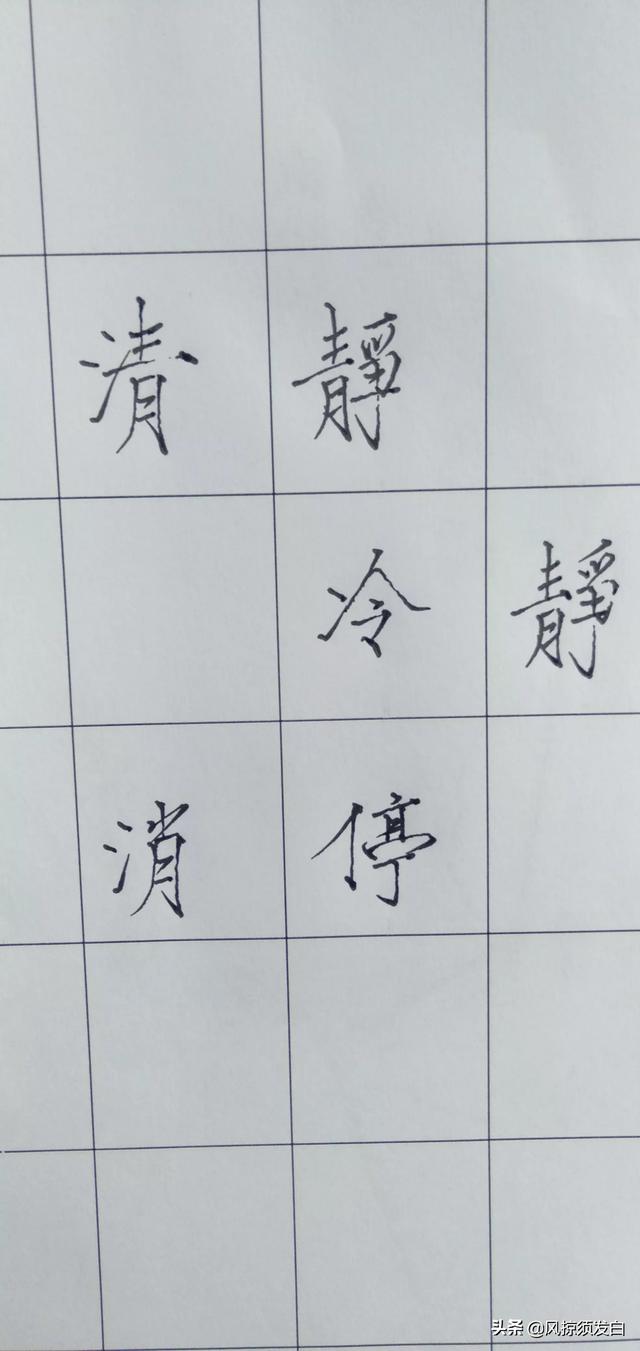 清靜
冷靜
消停
头条 @风掠须发白